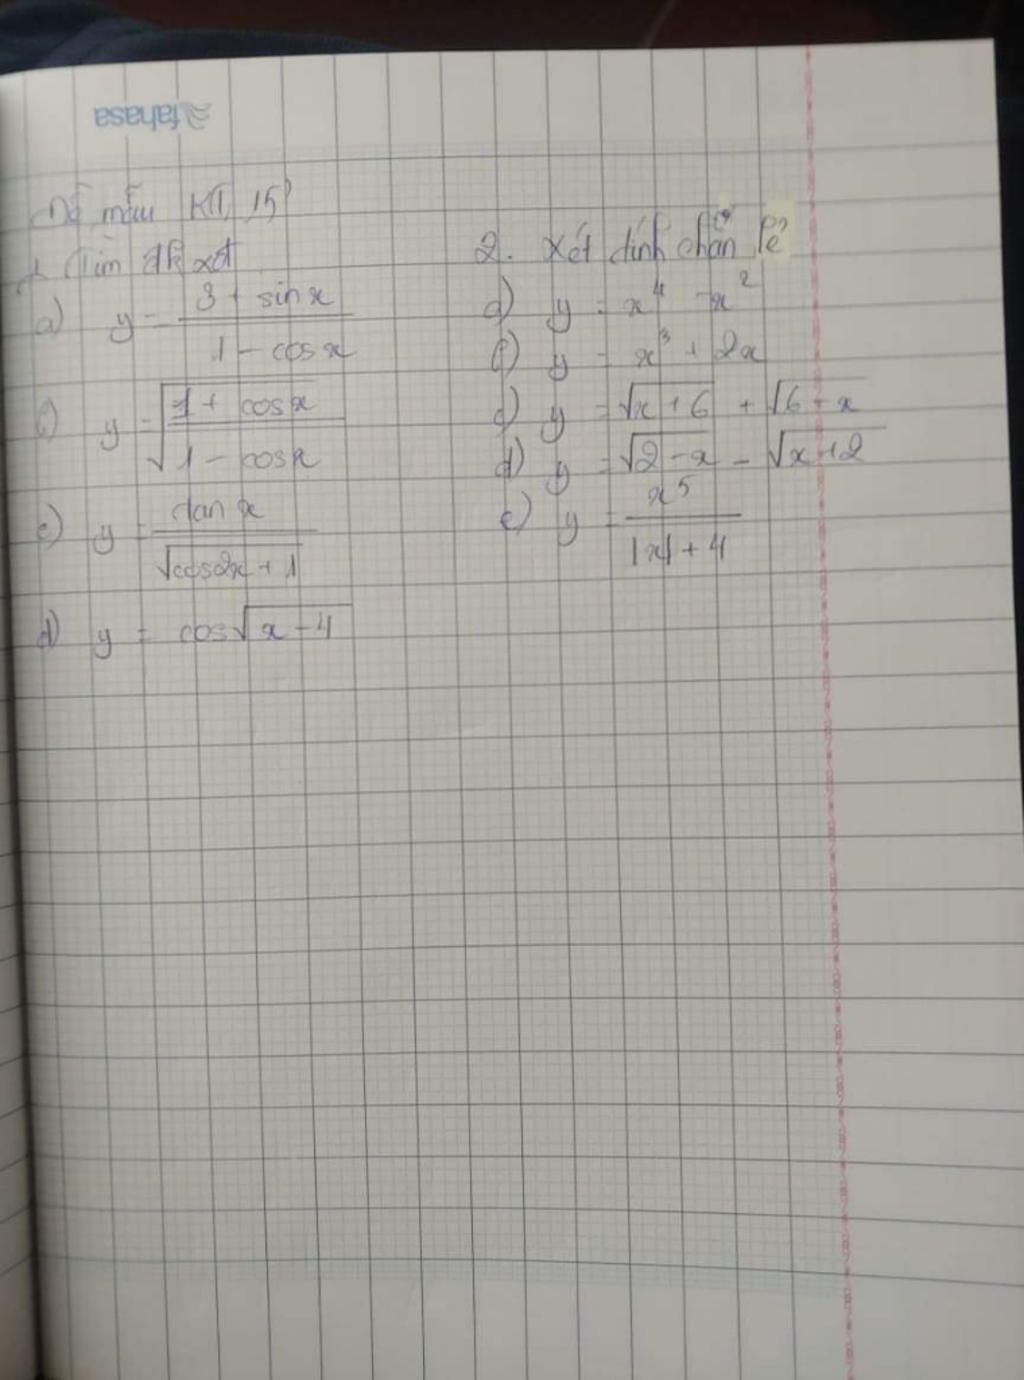 fahasa
Đề mẫu KT 15'
1. Tìm đk xđ
a) y = 3 + sin x / 1 - cos x
b) y = √(1 + cos x / 1 - cos x)
c) y = tan x / √(cos2x + 1)
d) y = cos√(x - 4)
2. Xét tính chẵn lẻ
a) y = x⁴ - x²
b) y = x³ + 2x
c) y = √(x + 6) + √(6 - x)
d) y = √(2 - x) - √(x + 2)
e) y = x⁵ / |x| + 4